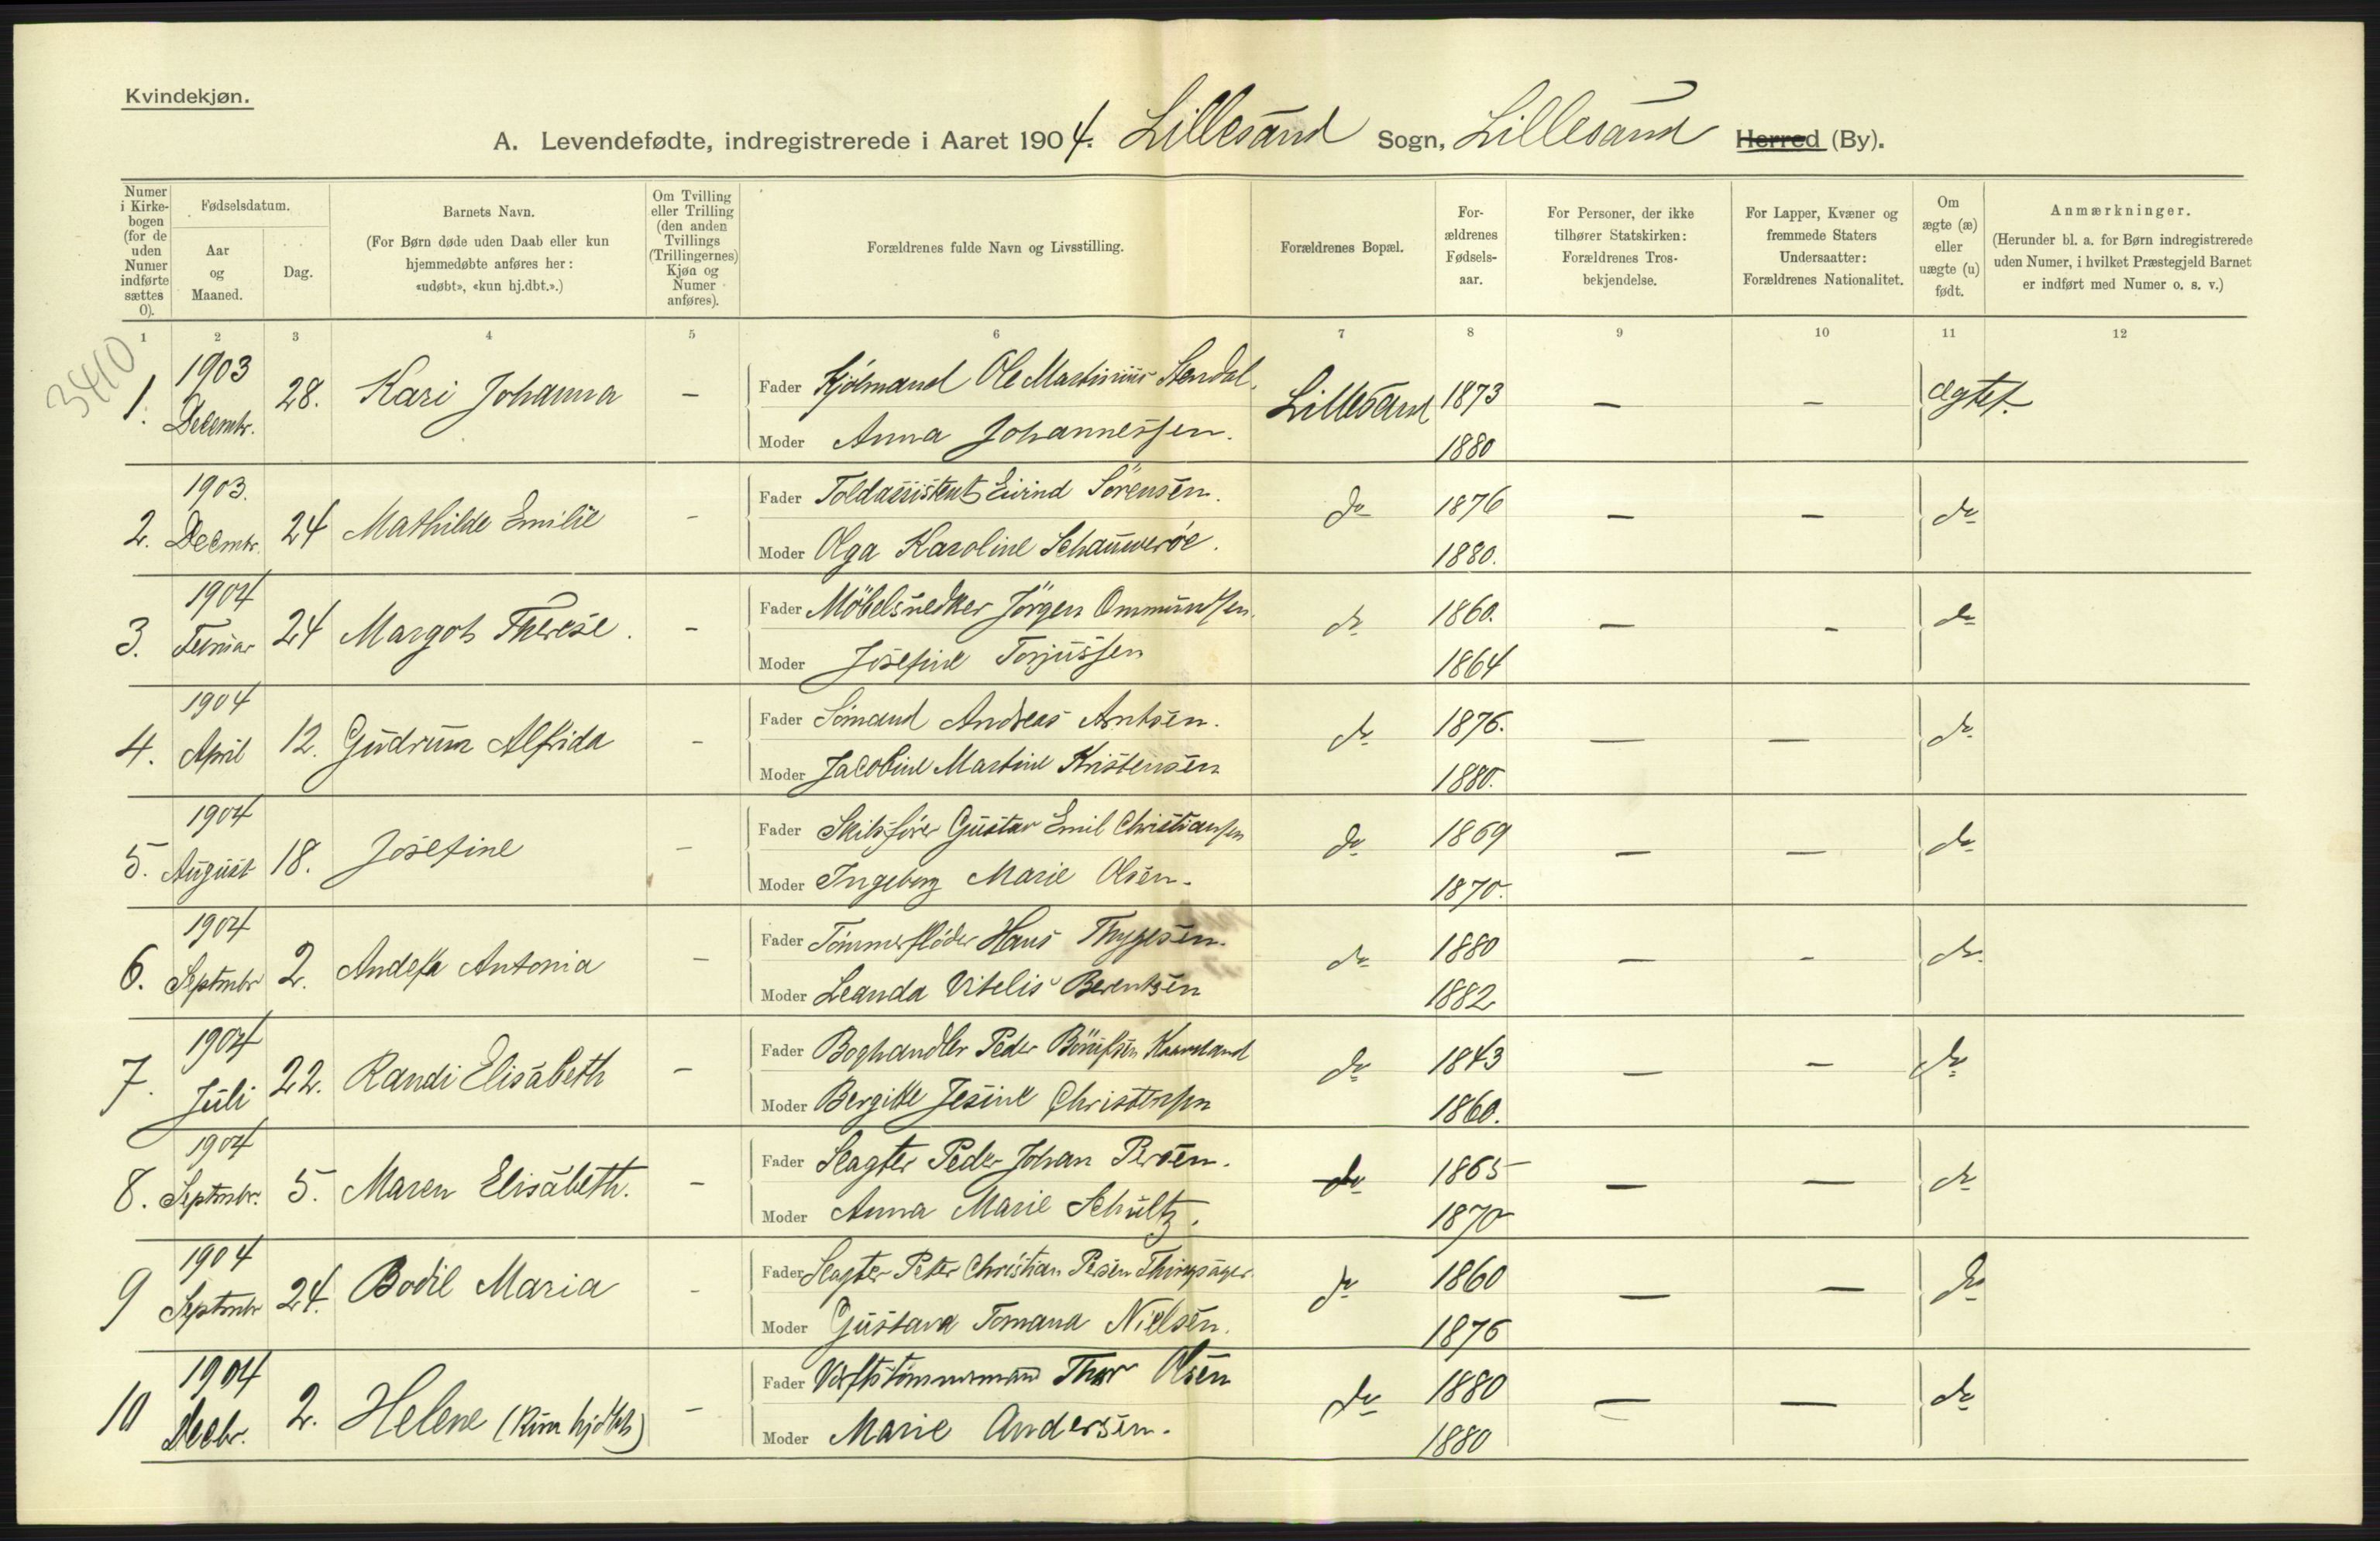 Kvindekjøn.
A. Levendefødte, indregistrerede i Aaret 1904. Lillesand Sogn, Lillesand Herred (By).
Numer i Kirkebogen (for de uden Numer indførte sættes 0).
Fødselsdatum.
Aar og Maaned.
Dag.
Barnets Navn.
(For Børn døde uden Daab eller kun hjemmedøbte anføres her: «udøbt», «kun hj.dbt.».)
Om Tvilling eller Trilling (den anden Tvillings (Trillingernes) Kjøn og Numer anføres).
Forældrenes fulde Navn og Livsstilling.
Forældrenes Bopæl.
Forældrenes Fødselsaar.
For Personer, der ikke tilhører Statskirken: Forældrenes Trosbekjendelse.
For Lapper, Kvæner og fremmede Staters Undersaatter: Forældrenes Nationalitet.
Om ægte (æ) eller uægte (u) født.
Anmærkninger.
(Herunder bl. a. for Børn indregistrerede uden Numer, i hvilket Præstegjeld Barnet er indført med Numer o. s. v.)
1 2 3 4 5 6 7 8 9 10 11 12
3410
1. 1903 Decembr. 28. Kari Johanna - Fader Ole Martinius Stendal. Lillesand 1873 - - ægtef.
Moder Anna Johannessen. 1880
2. 1903. Decmbr. 24 Mathilde Emilie - Fader Toldassistent Eivind Sörensen. do 1876 - - do
Moder Olga Karoline 1880.
3. 1904 Februar 24 Margot Therese. - Fader Möbelsnedker Jörgen Ommundsen. do 1860. - - do
Moder Josefine Torjussen 1864
4. 1904 April 12. Gudrun Alfrida - Fader Sömand Andreas Arntsen. do 1876. - - do
Moder Jacobine Martine Kristensen 1880.
5. 1904 August 18. Josefine - Fader Skibsförer Gustav Emil Christiansen do 1869 - - do
Moder Ingeborg Marie Olsen. 1870.
6. 1904 Septmbr 2. Antonia - Fader Tömmerflöder Hans Thygesen. do 1880 - - do
Moder Leanda Vitelis Berentsen 1882
7. 1904 Juli 22. Randi Elisabeth - Fader Boghandler Peder do 1843 - - do
Moder Bergitte Jesine Christensen 1860.
8. 1904 Septmbr. 5. Maren Elisabeth. - Fader Slagter Peder Johan Persen. do 1865 - - do
Moder Anna Marie Schultz. 1870
9 1904 Septmbr 24. Bodil Maria - Fader Slagter Peter Christian Persen do 1860 - - do
Moder Gustava Tomana Nielsen. 1876
10 1904 Decbr. 2. Helene (Kun hjdbt) - Fader Verftstömmermand Thor Olsen do 1880 - - do
Moder Marie Andersen. 1880